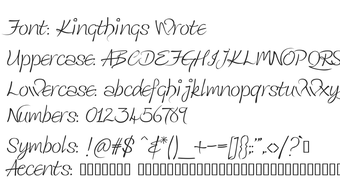 Font: Kingthings Wrote
Uppercase: ABCDEFGHIJKLMNOPQRS
Lowercase: abcdefghijklmnopqrstuvwxyz
Numbers: 0123456789
Symbols: !@#$^&*()_+-=[]{};:"',.<>/?`
Accents: